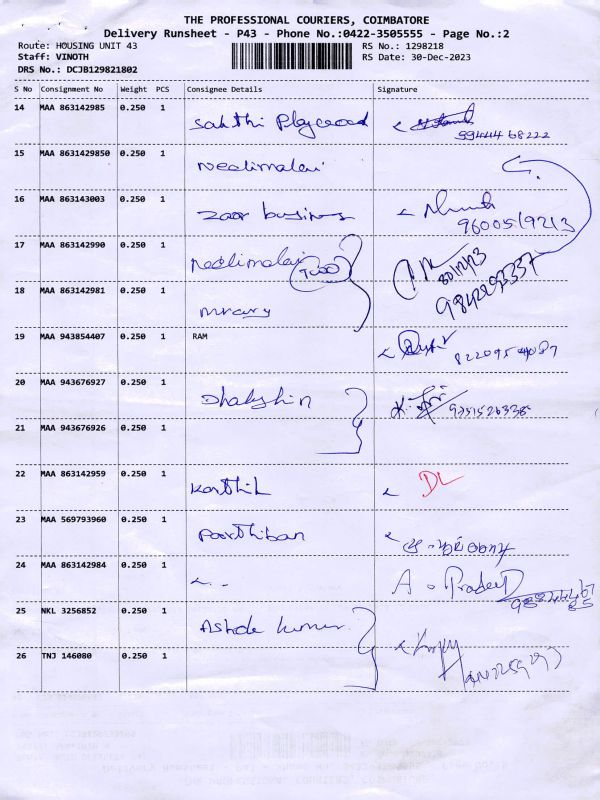 THE PROFESSIONAL COURIERS, COIMBATORE
Delivery Runsheet - P43 - Phone No.:0422-3505555 - Page No.:2
Route: HOUSING UNIT 43 RS No.: 1298218
Staff: VINOTH RS Date: 30-Dec-2023
DRS No.: DCJB129821802
S No Consignment No Weight PCS Consignee Details Signature
14 MAA 863142985 0.250 1 Sakthi Plywood 99444 68222
15 MAA 8631429850 0.250 1 Neelimalai
16 MAA 863143003 0.250 1 Zaar business 9600519213
17 MAA 863142990 0.250 1 Neelimalai 30/12/23
18 MAA 863142981 0.250 1 9842293337
19 MAA 943854407 0.250 1 RAM 8220954087
20 MAA 943676927 0.250 1
21 MAA 943676926 0.250 1
22 MAA 863142959 0.250 1 Karthik DL
23 MAA 569793960 0.250 1 Parthiban
24 MAA 863142984 0.250 1 A. Pradeep
25 NKL 3256852 0.250 1 Ashok kumar
26 TNJ 146080 0.250 1